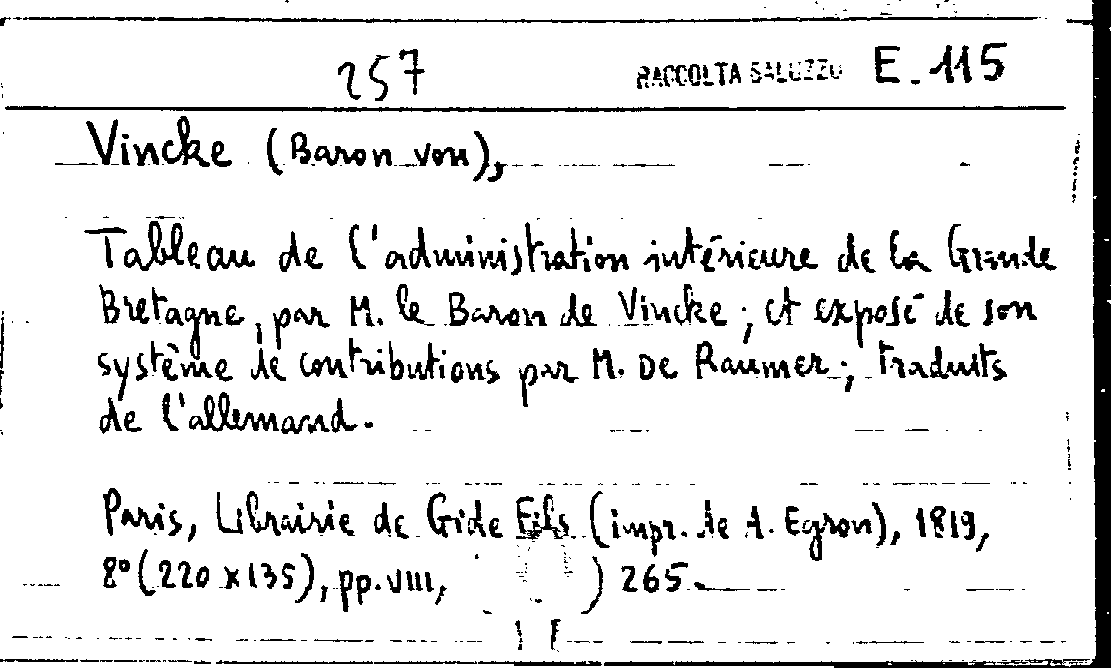 257 RACCOLTA SALUZZO E. 115
Vincke (Baron von),
Tableau de l'administration intérieure de la Grande
Bretagne, par M. le Baron de Vincke; et exposé de son
système de contributions par M. De Raumer; traduits
de l'allemand.
Paris, Librairie de Gide Fils (impr. de A. Egron), 1819,
8° (220 x 135), pp. VIII, 265.